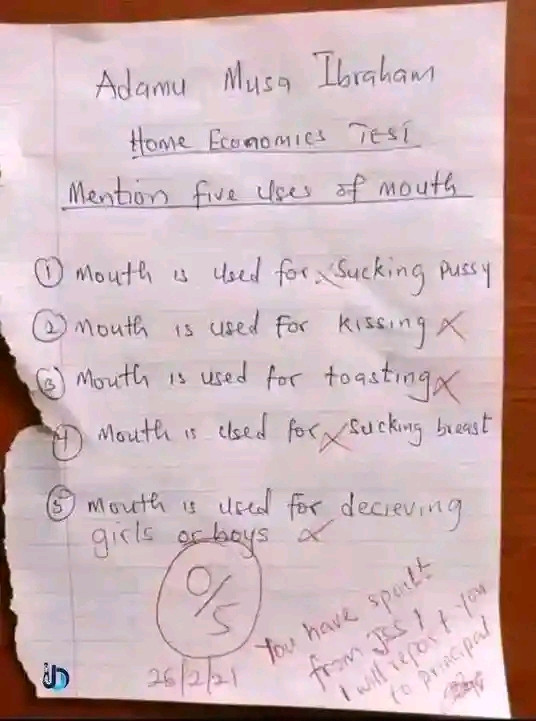 Adamu Musa Ibraham
Home Economics TEST
Mention five uses of mouth
① Mouth is used for sucking pussy
② Mouth is used for kissing
③ Mouth is used for toasting
④ Mouth is used for sucking breast
⑤ mouth is used for decieving
girls or boys
0/5
26/2/21
You have spoilt
from JSS1
I will report you
to principal